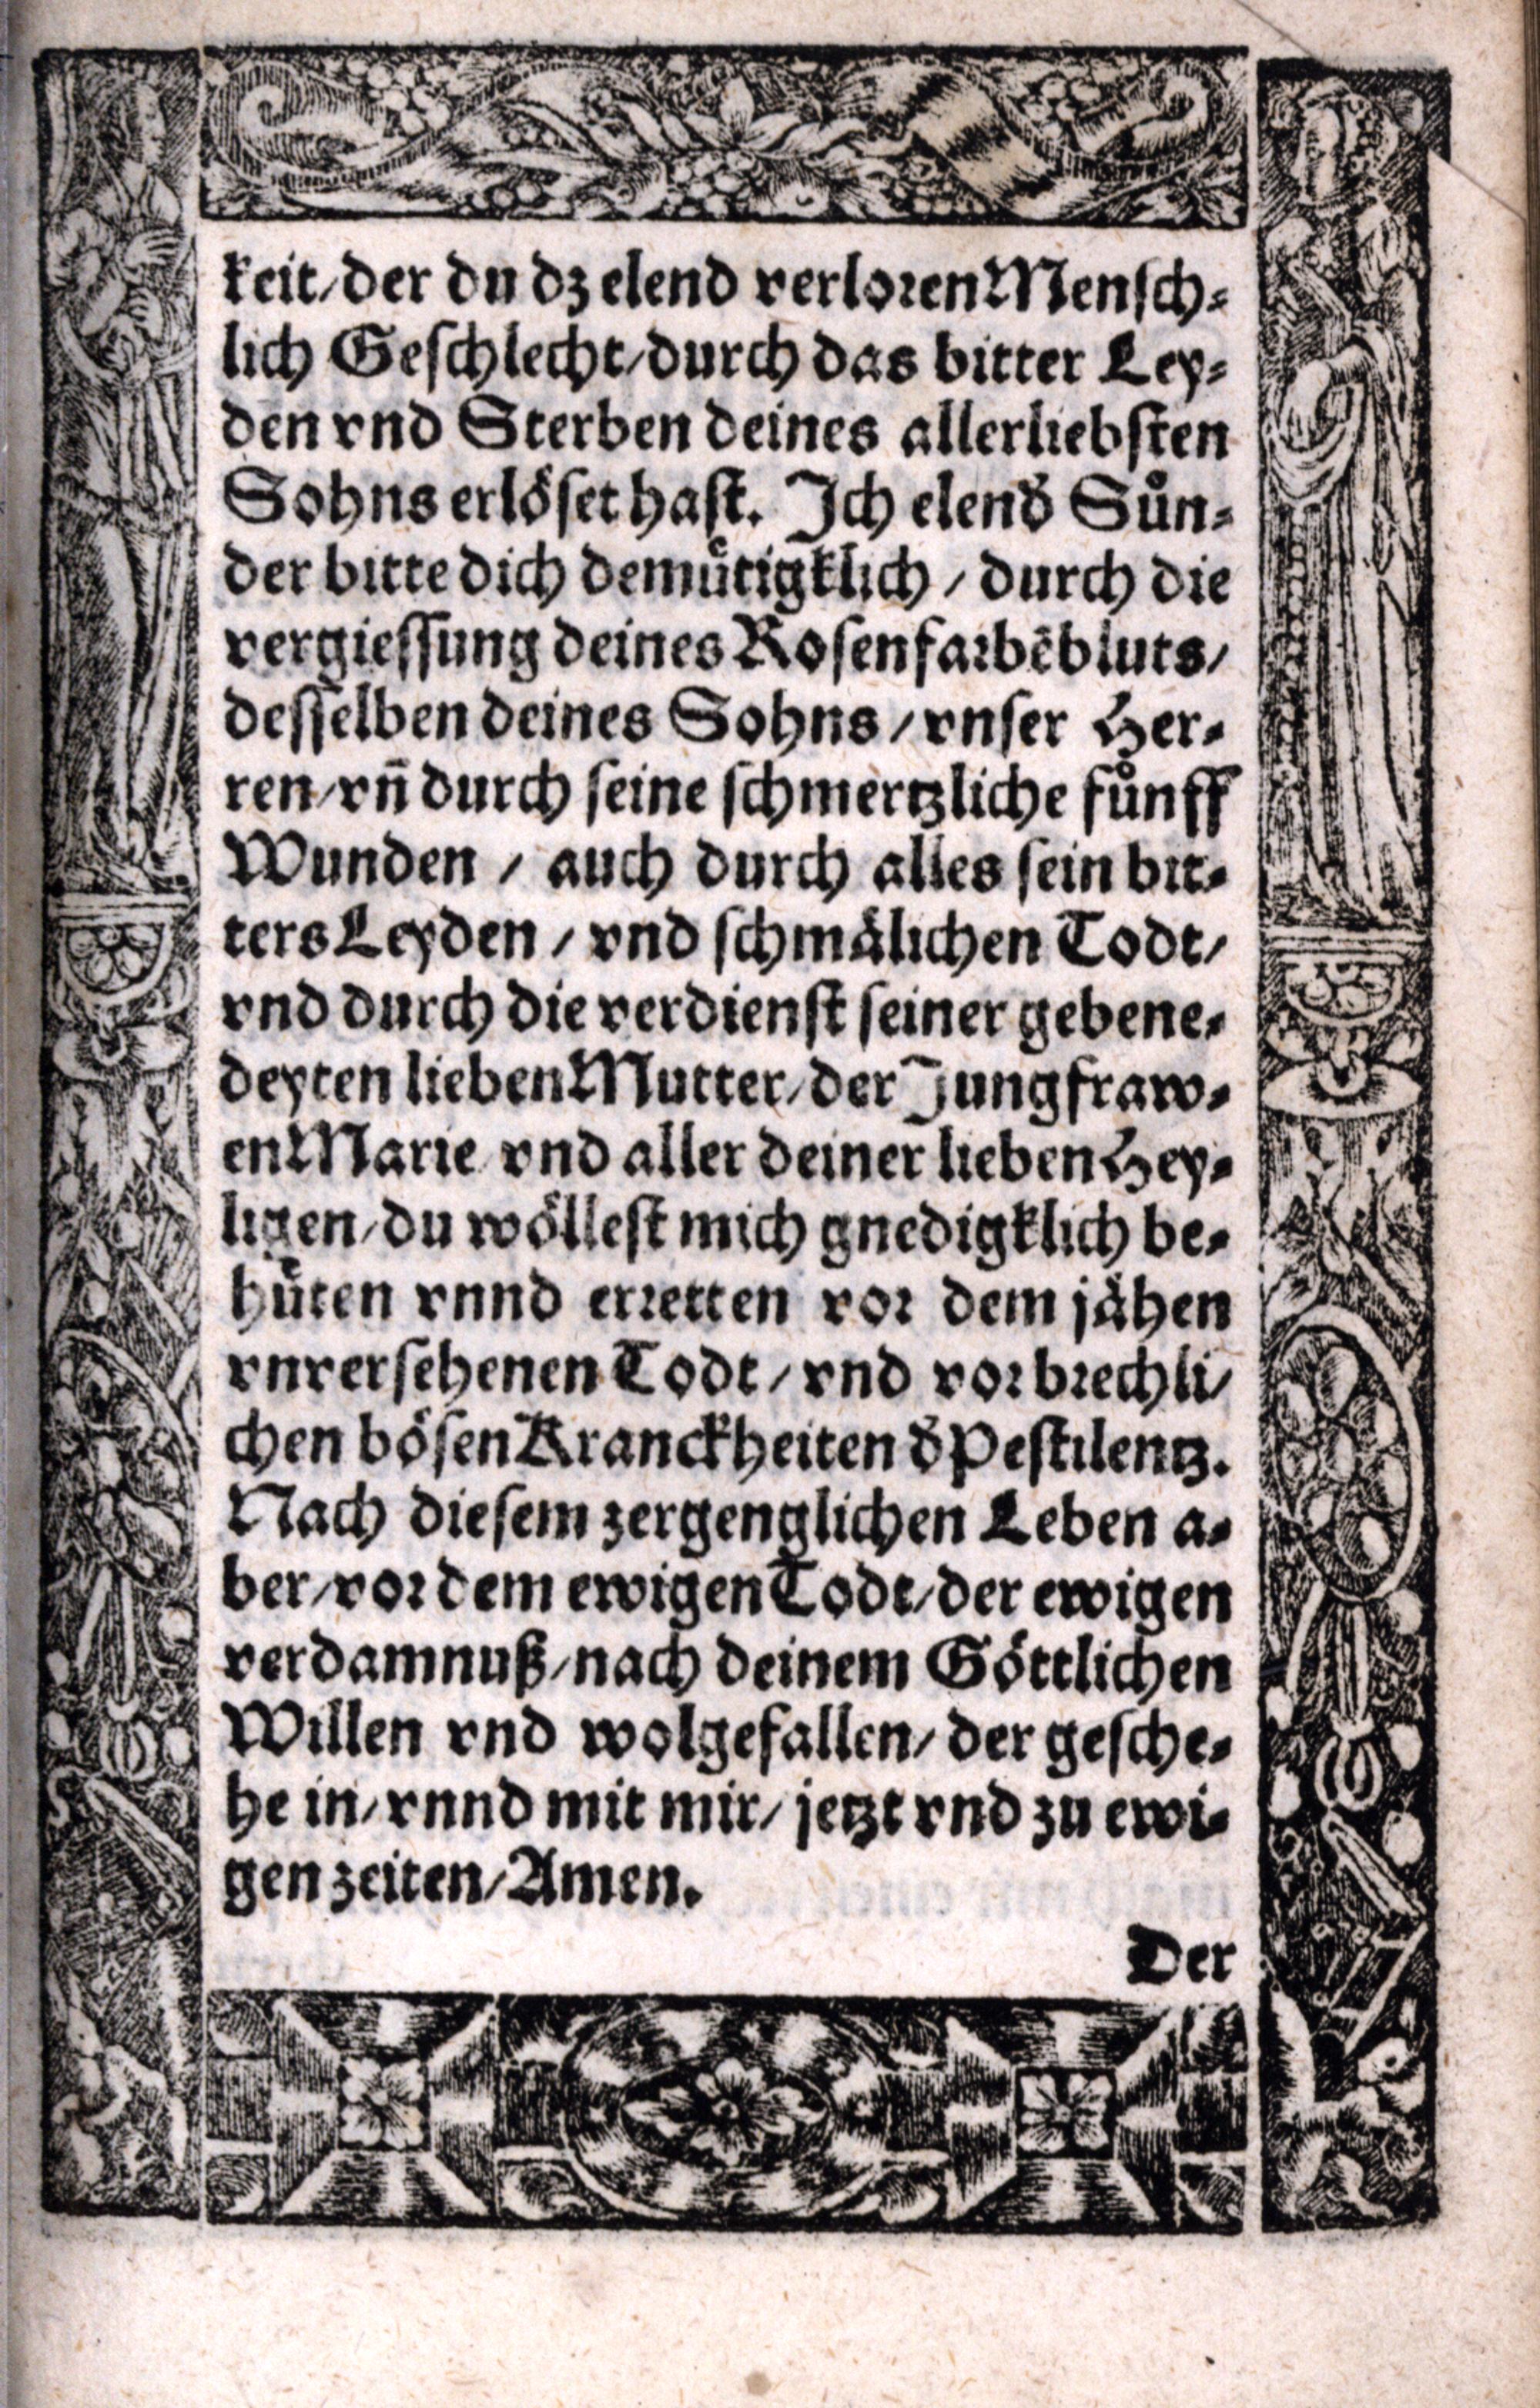 keit/der du dz elend verloren Mensch⸗
lich Geschlecht/durch das bitter Ley⸗
den vnd Sterben deines allerliebsten
Sohns erlöset hast. Ich elend̄ Sůn⸗
der bitte dich demuͤtigklich / durch die
vergiessung deines Rosenfarbēbluts/
desselben deines Sohns / vnser Her⸗
ren/vn̄ durch seine schmertzliche fůnff
Wunden / auch durch alles sein bit⸗
ters Leyden / vnd schmälichen Todt/
vnd durch die verdienst seiner gebene⸗
deyten lieben Mutter/der Jungfraw⸗
en Marie vnd aller deiner lieben Hey⸗
ligen/du wöllest mich gnedigklich be⸗
huͤten vnnd erretten vor dem jähen
vnversehenen Todt / vnd vor brechli/
chen bösen Kranckheiten d̄ Pestilentz.
Nach diesem zergenglichen Leben a⸗
ber/vor dem ewigen Todt/der ewigen
verdamnuß/nach deinem Göttlichen
Willen vnd wolgefallen/der gesche⸗
he in/vnnd mit mir/jetzt vnd zu ewi⸗
gen zeiten/Amen.
Der